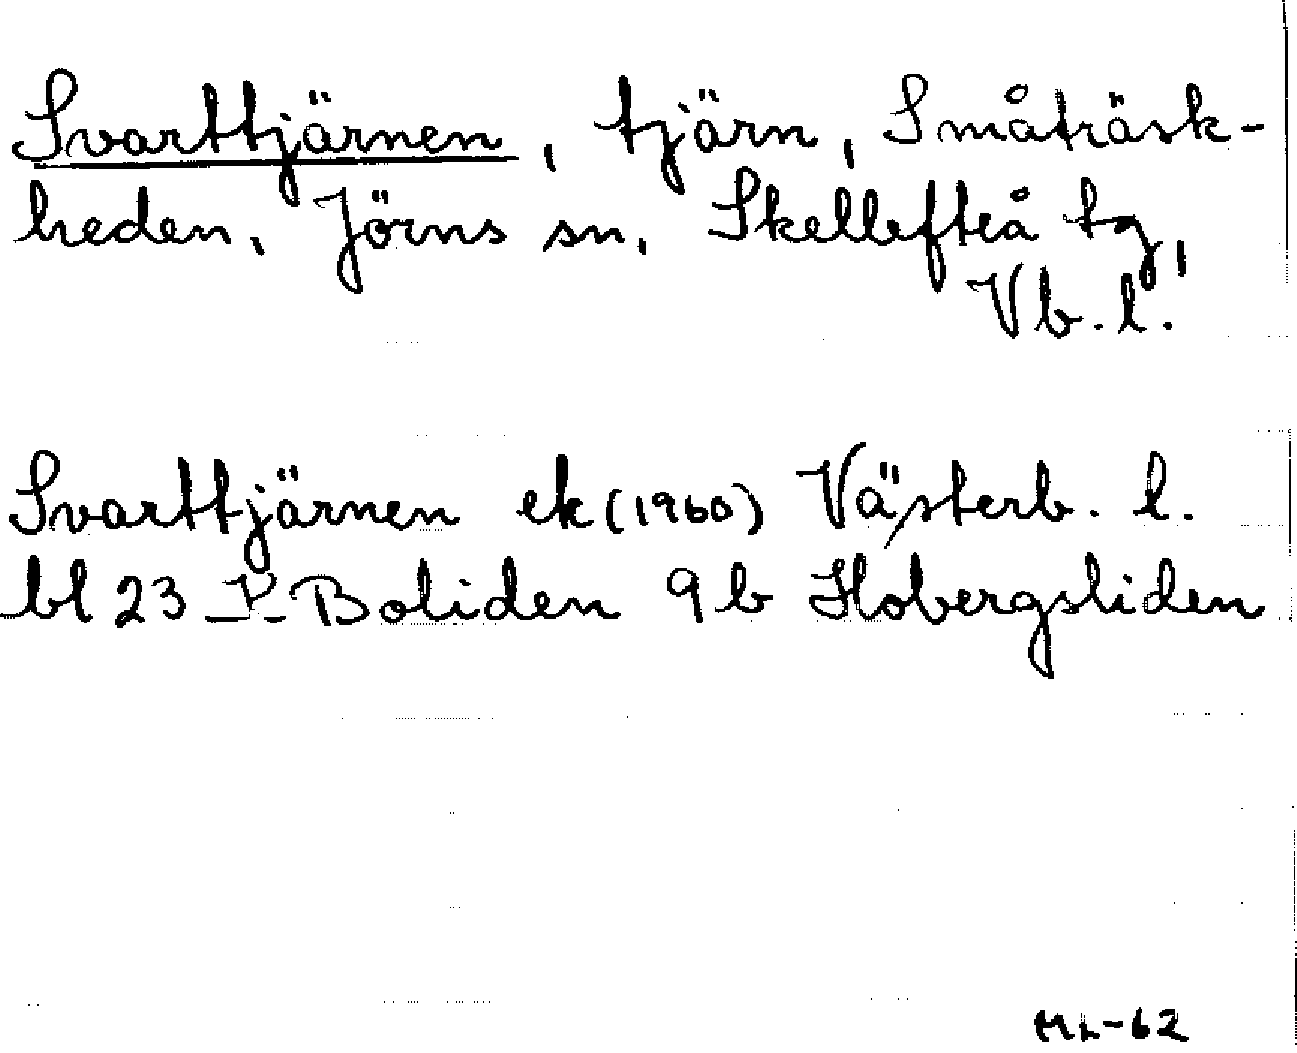 Svarttjärnen, tjärn, Småträsk-
heden, Jörns sn, Skellefteå tg,
Vb. l.
Svarttjärnen ek (1960) Västerb. l.
bl 23 J-Boliden 9b Hobergsliden
ML-62